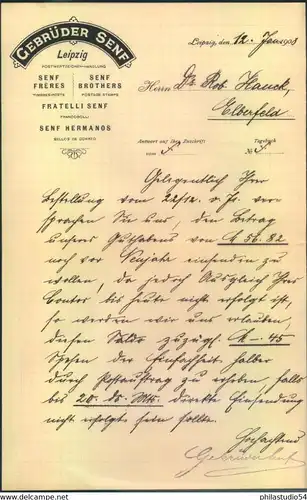 GEBRÜDER SENF
Leipzig
POSTWERTZEICHEN-HANDLUNG
SENF FRÈRES
TIMBRES-POSTE
SENF BROTHERS
POSTAGE STAMPS
FRATELLI SENF
FRANCOBOLLI
SENF HERMANOS
SELLOS DE CORREO
Leipzig, den 12. Jan. 1908
Herrn Dr. Rob. Hauck,
Elberfeld
Antwort auf Ihre Zuschrift
vom
Tagebuch
№
Gelegentlich Ihrer
Bestellung vom 22/12. v. Js. ver-
sprachen Sie uns, den Betrag
unseres Guthabens von M 56.82
noch vor Neujahr einsenden zu
wollen, da jedoch Ausgleich Ihres
Contos bis heute nicht erfolgt ist,
so werden wir uns erlauben,
diesen Saldo zuzügl. M -.45
Spesen der Einfachheit halber
durch Postauftrag zu erheben, falls
bis 20. ds. Mts. direkte Einsendung
nicht erfolgt sein sollte.
Hochachtend
Gebrüder Senf
philastudio54